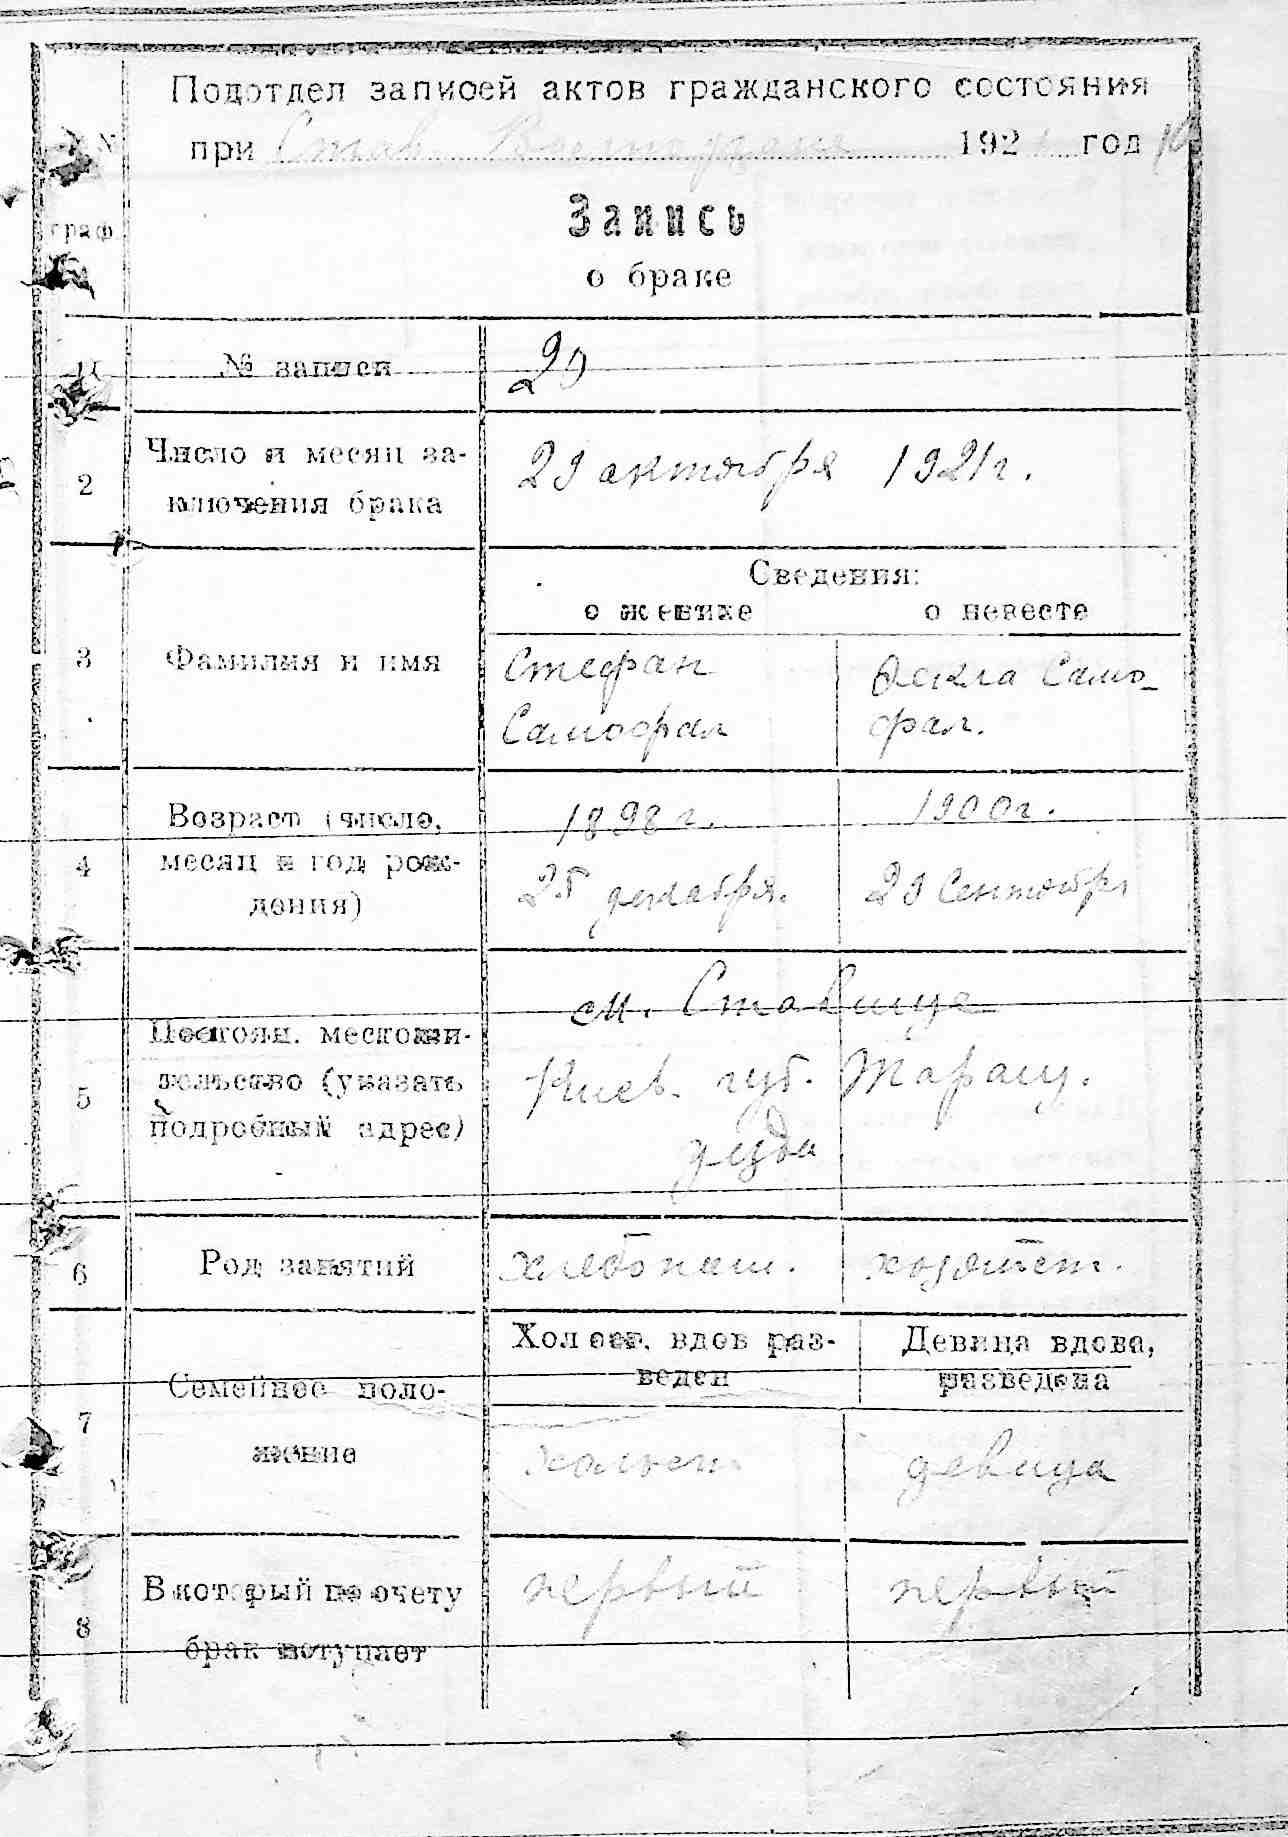 Подотдел записей актов гражданского состояния
при Став. 1921 год
№
граф
Запись
о браке
№ записи
29
2
Число и месяц за-
ключения брака
29 октября 1921 г.
Сведения:
о женихе
о невесте
3
Фамилия и имя
Стефан
Самофал
Фекла Само-
фал.
4
Возраст (число,
месяц и год рож-
дения)
1898 г.
25 декабря.
1900 г.
29 Сентября
5
Постоян. местожи-
тельство (указать
подробный адрес)
см. Ставище
Киев. губ. Таращ.
уезда
6
Род занятий
хлебопаш.
хозяйст.
7
Семейное поло-
жение
Холост, вдов раз-
веден
Девица вдова,
разведена
холост
девица
8
В который по счету
брак вступает
первый
первый